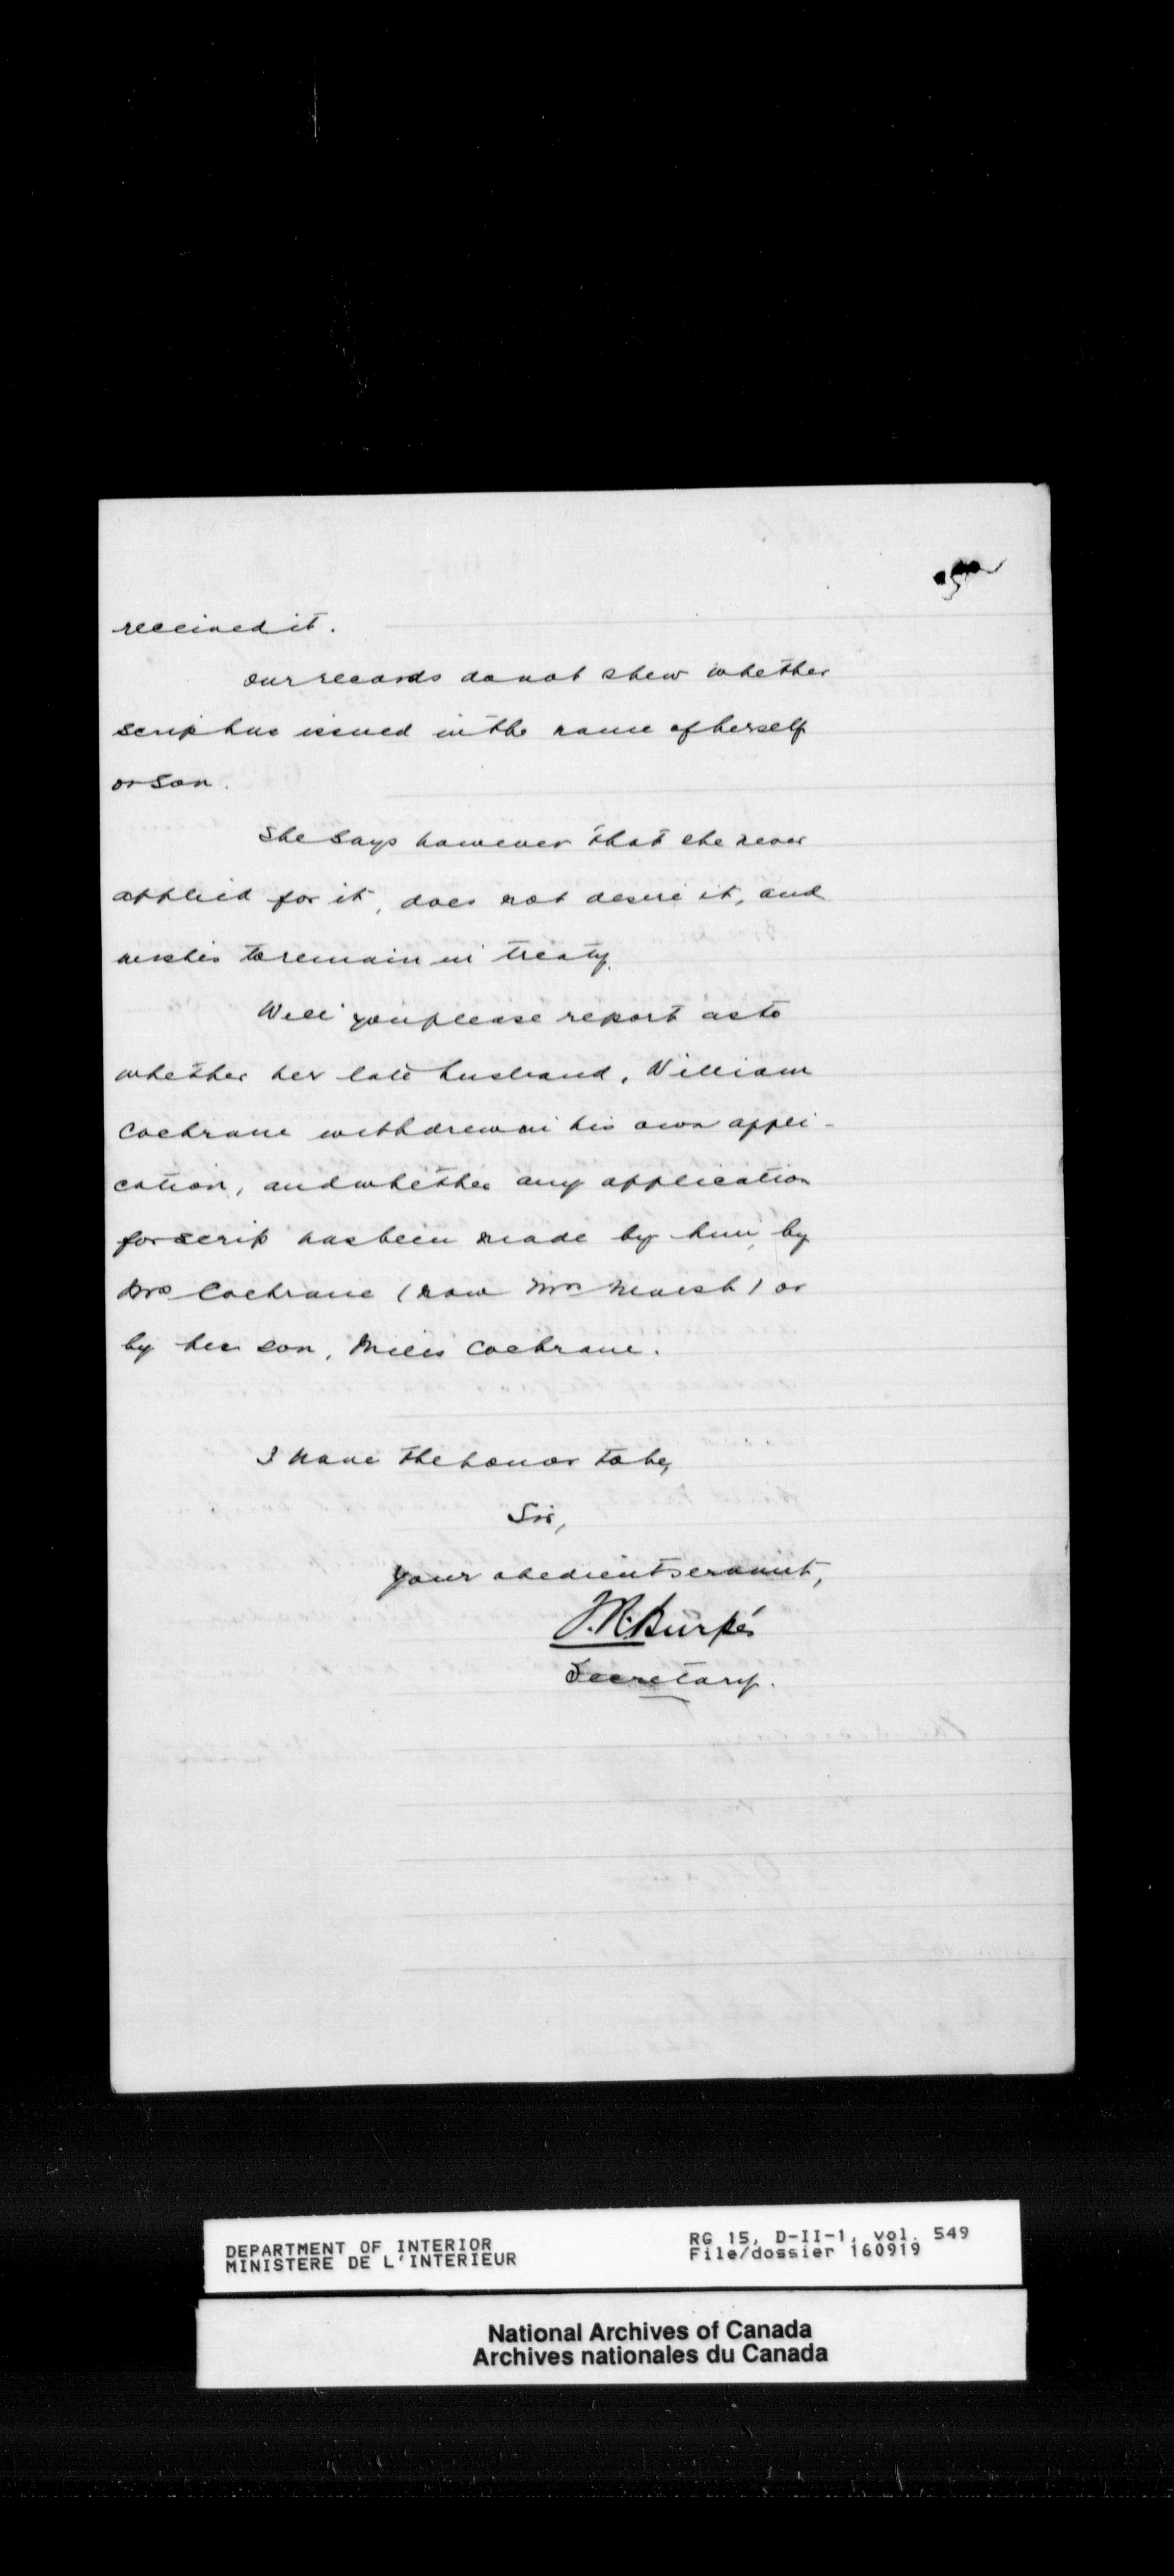 received it.
Our records do not shew whether
scrip has issued in the name of herself
or son.
She says however that she never
applied for it, does not desire it, and
wishes to remain in treaty.
Will you please report as to
whether her late husband, William
Cochrane withdrew on his own appli-
cation, and whether any application
for scrip has been made by him, by
Mrs Cochrane (now Mrs Marsh) or
by her son, Miles Cochrane.
I have the honor to be,
Sir,
your obedient servant,
Secretary.
DEPARTMENT OF INTERIOR
MINISTERE DE L'INTERIEUR
RG 15, D-II-1, vol. 549
File/dossier 160919
National Archives of Canada
Archives nationales du Canada